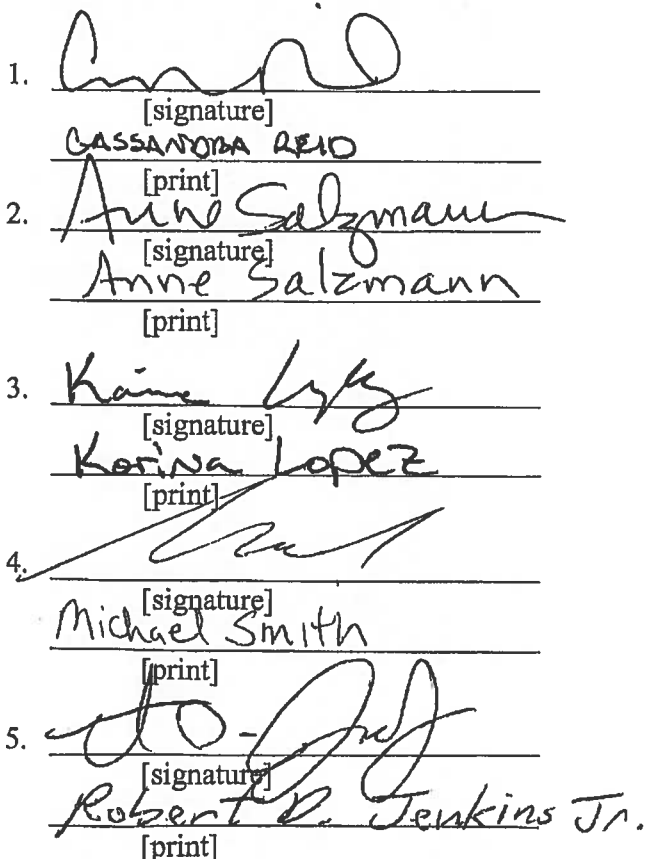 1.
[signature]
CASSANDRA REID
[print]
2. Anne Salzmann
[signature]
Anne Salzmann
[print]
3.
[signature]
Korina Lopez
[print]
4.
[signature]
Michael Smith
[print]
5.
[signature]
Robert D. Jenkins Jr.
[print]